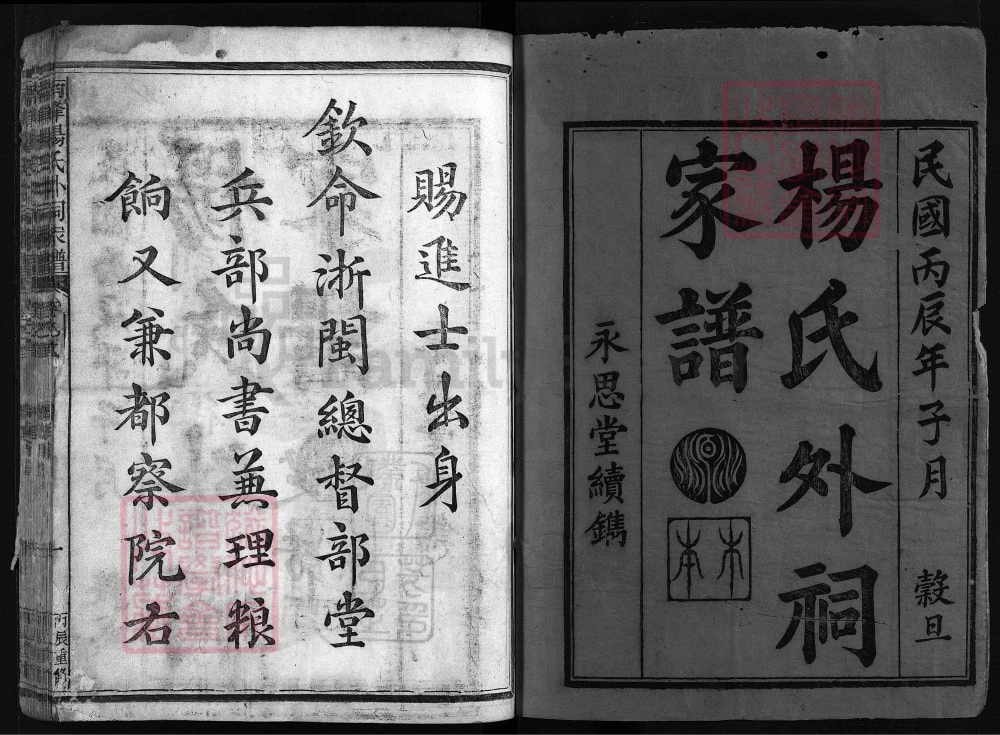 民國丙辰年子月 穀旦
楊氏外祠
家譜
永思堂續鐫
賜進士出身
欽命浙閩總督部堂
兵部尚書兼理粮
餉又兼都察院右
楊氏外祠家譜
一
丙辰重修